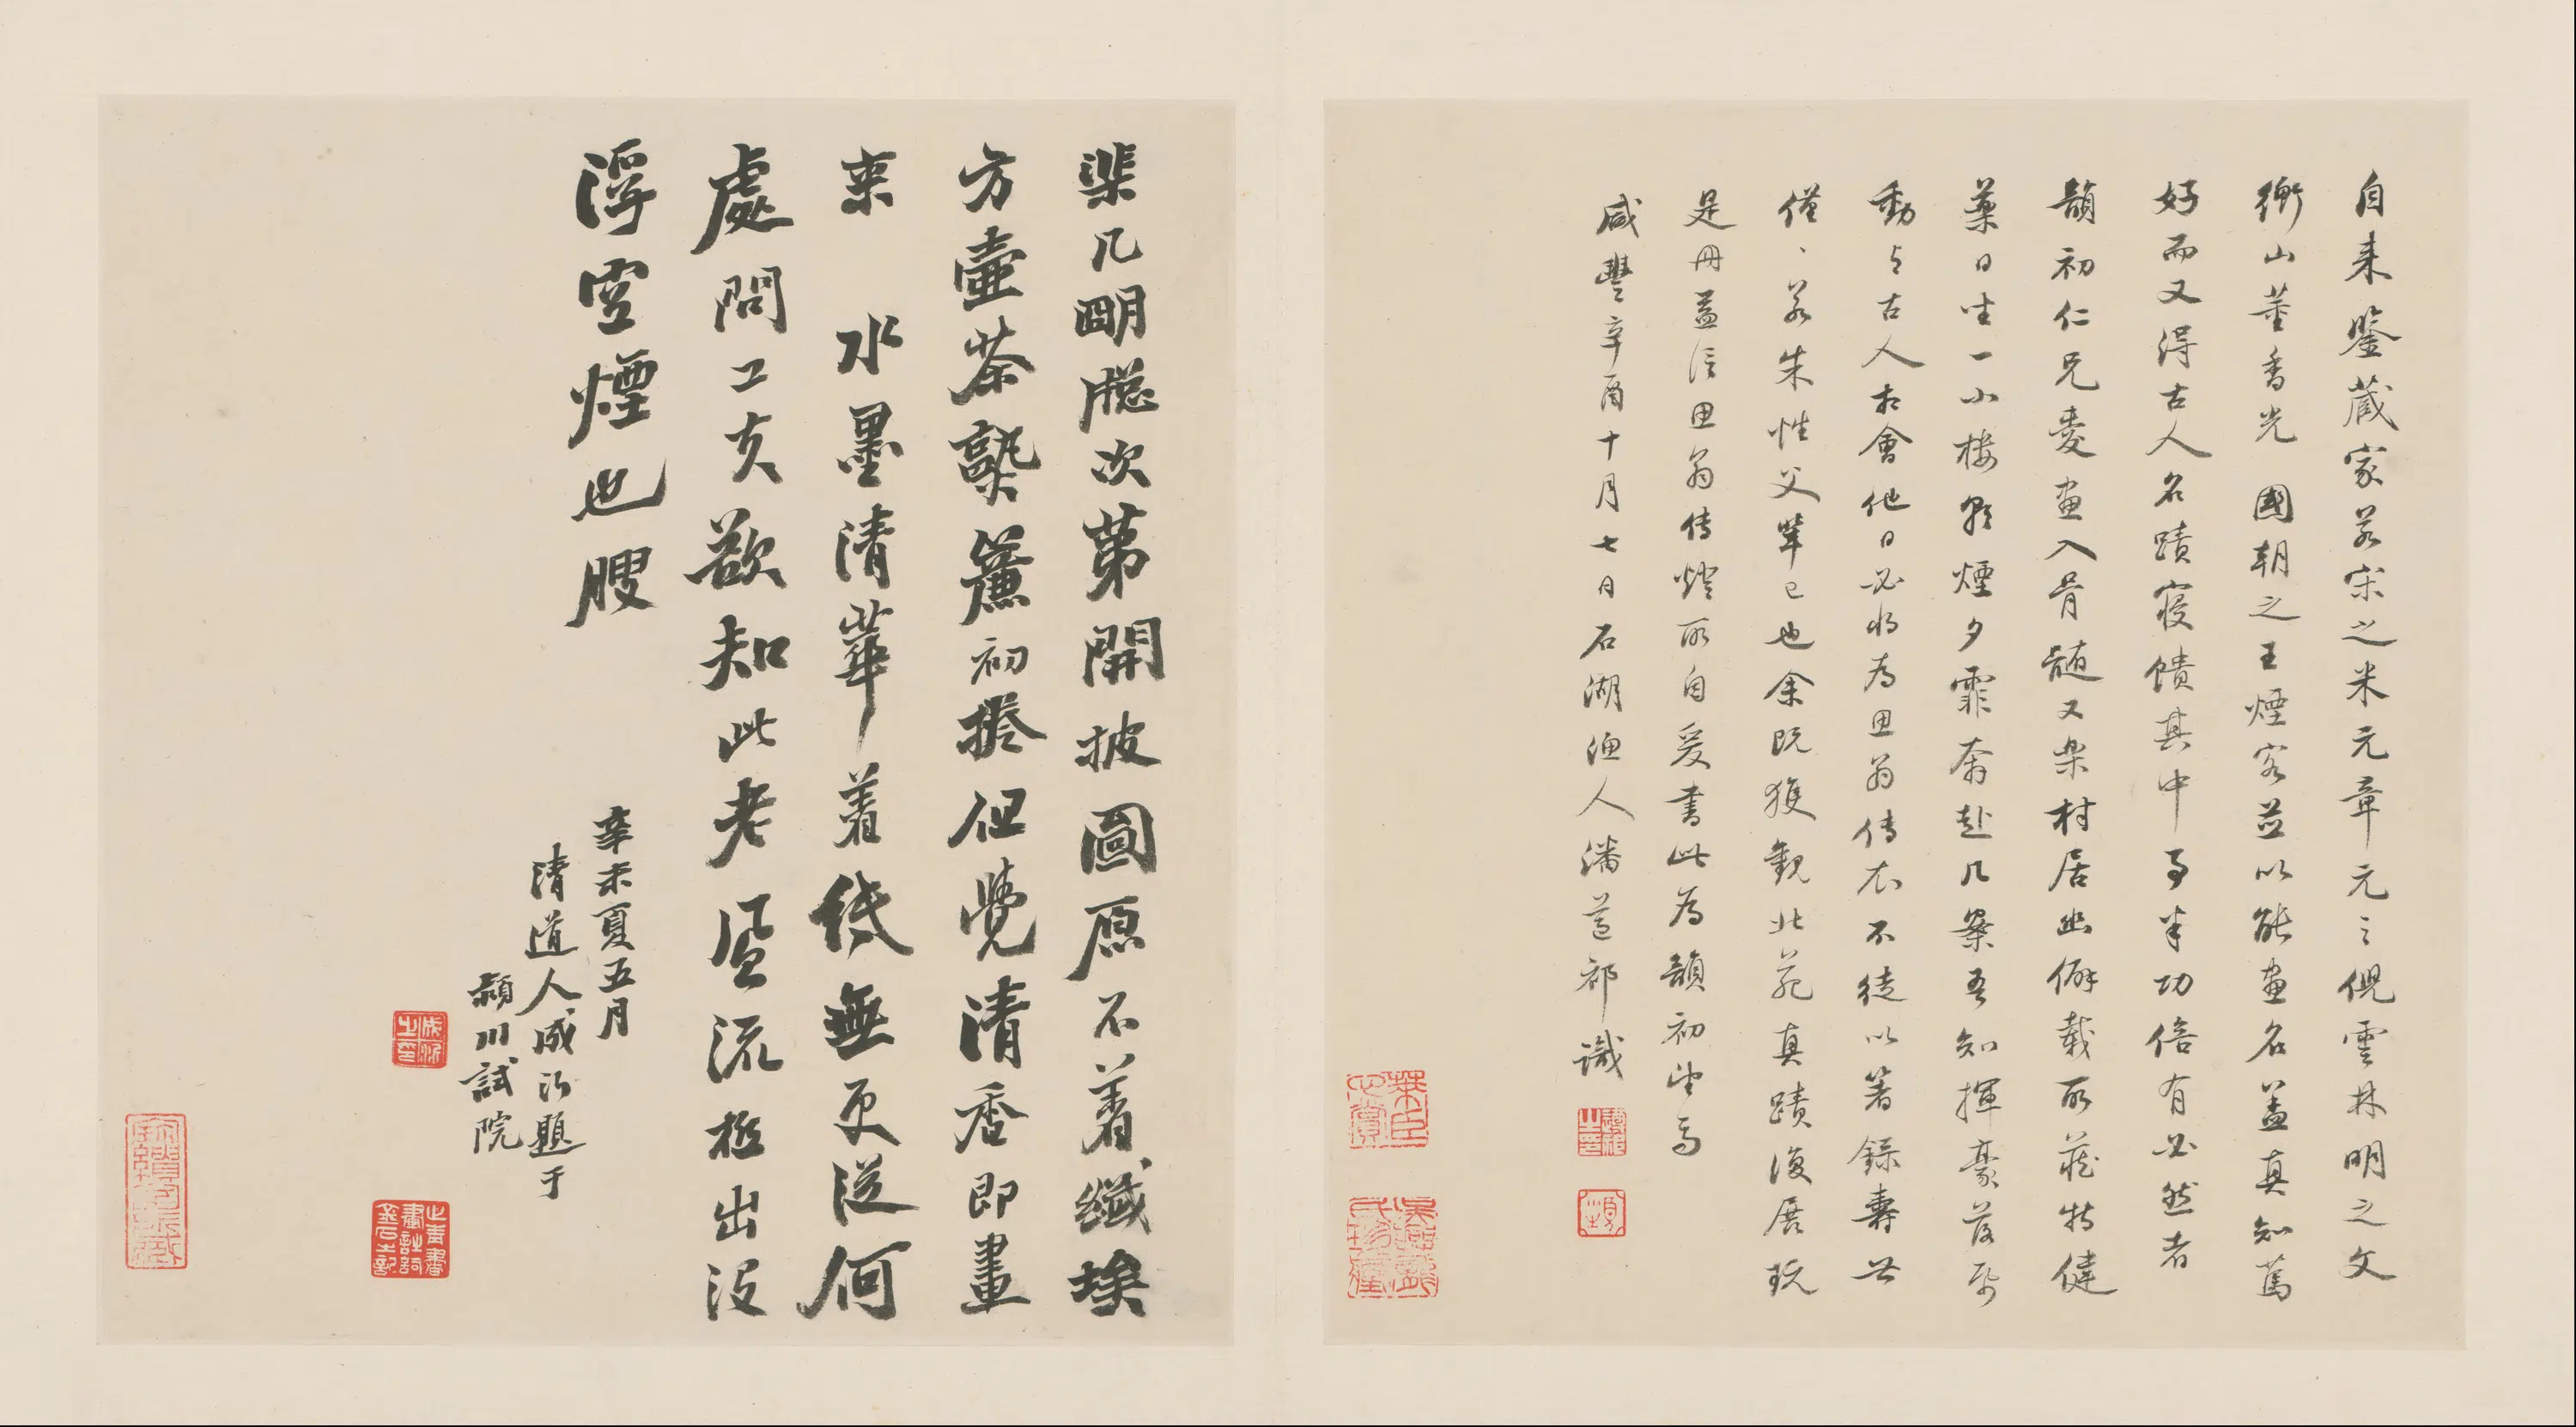 自来鑒藏家若宋之米元章元之倪雲林明之文
衡山董香光 國朝之王煙客並以能畫名蓋真知篤
好而又得古人名蹟寝饋其中事半功倍有必然者
韻初仁兄耆畫入骨髓又樂村居幽僻載所藏特健
藥日坐一小樓朝煙夕霏奔赴几案吾知揮豪落帋
動與古人相會他日必將為思翁傳衣不徒以著錄壽世
僅、若朱性父輩已也余既獲觀北苑真蹟復展玩
是冊益信思翁傳燈所自爰書此為韻初望焉
咸豐辛酉十月七日石湖漁人潘遵祁識
棐几明牕次第開披圖原不着纖埃
方壺茶熟簾初捲但覺清香即畫
来 水墨清華着紙無更從何
處問工夫欲知此老風流極出没
浮空煙也腴
辛未夏五月
清道人成沂題于
潁川試院